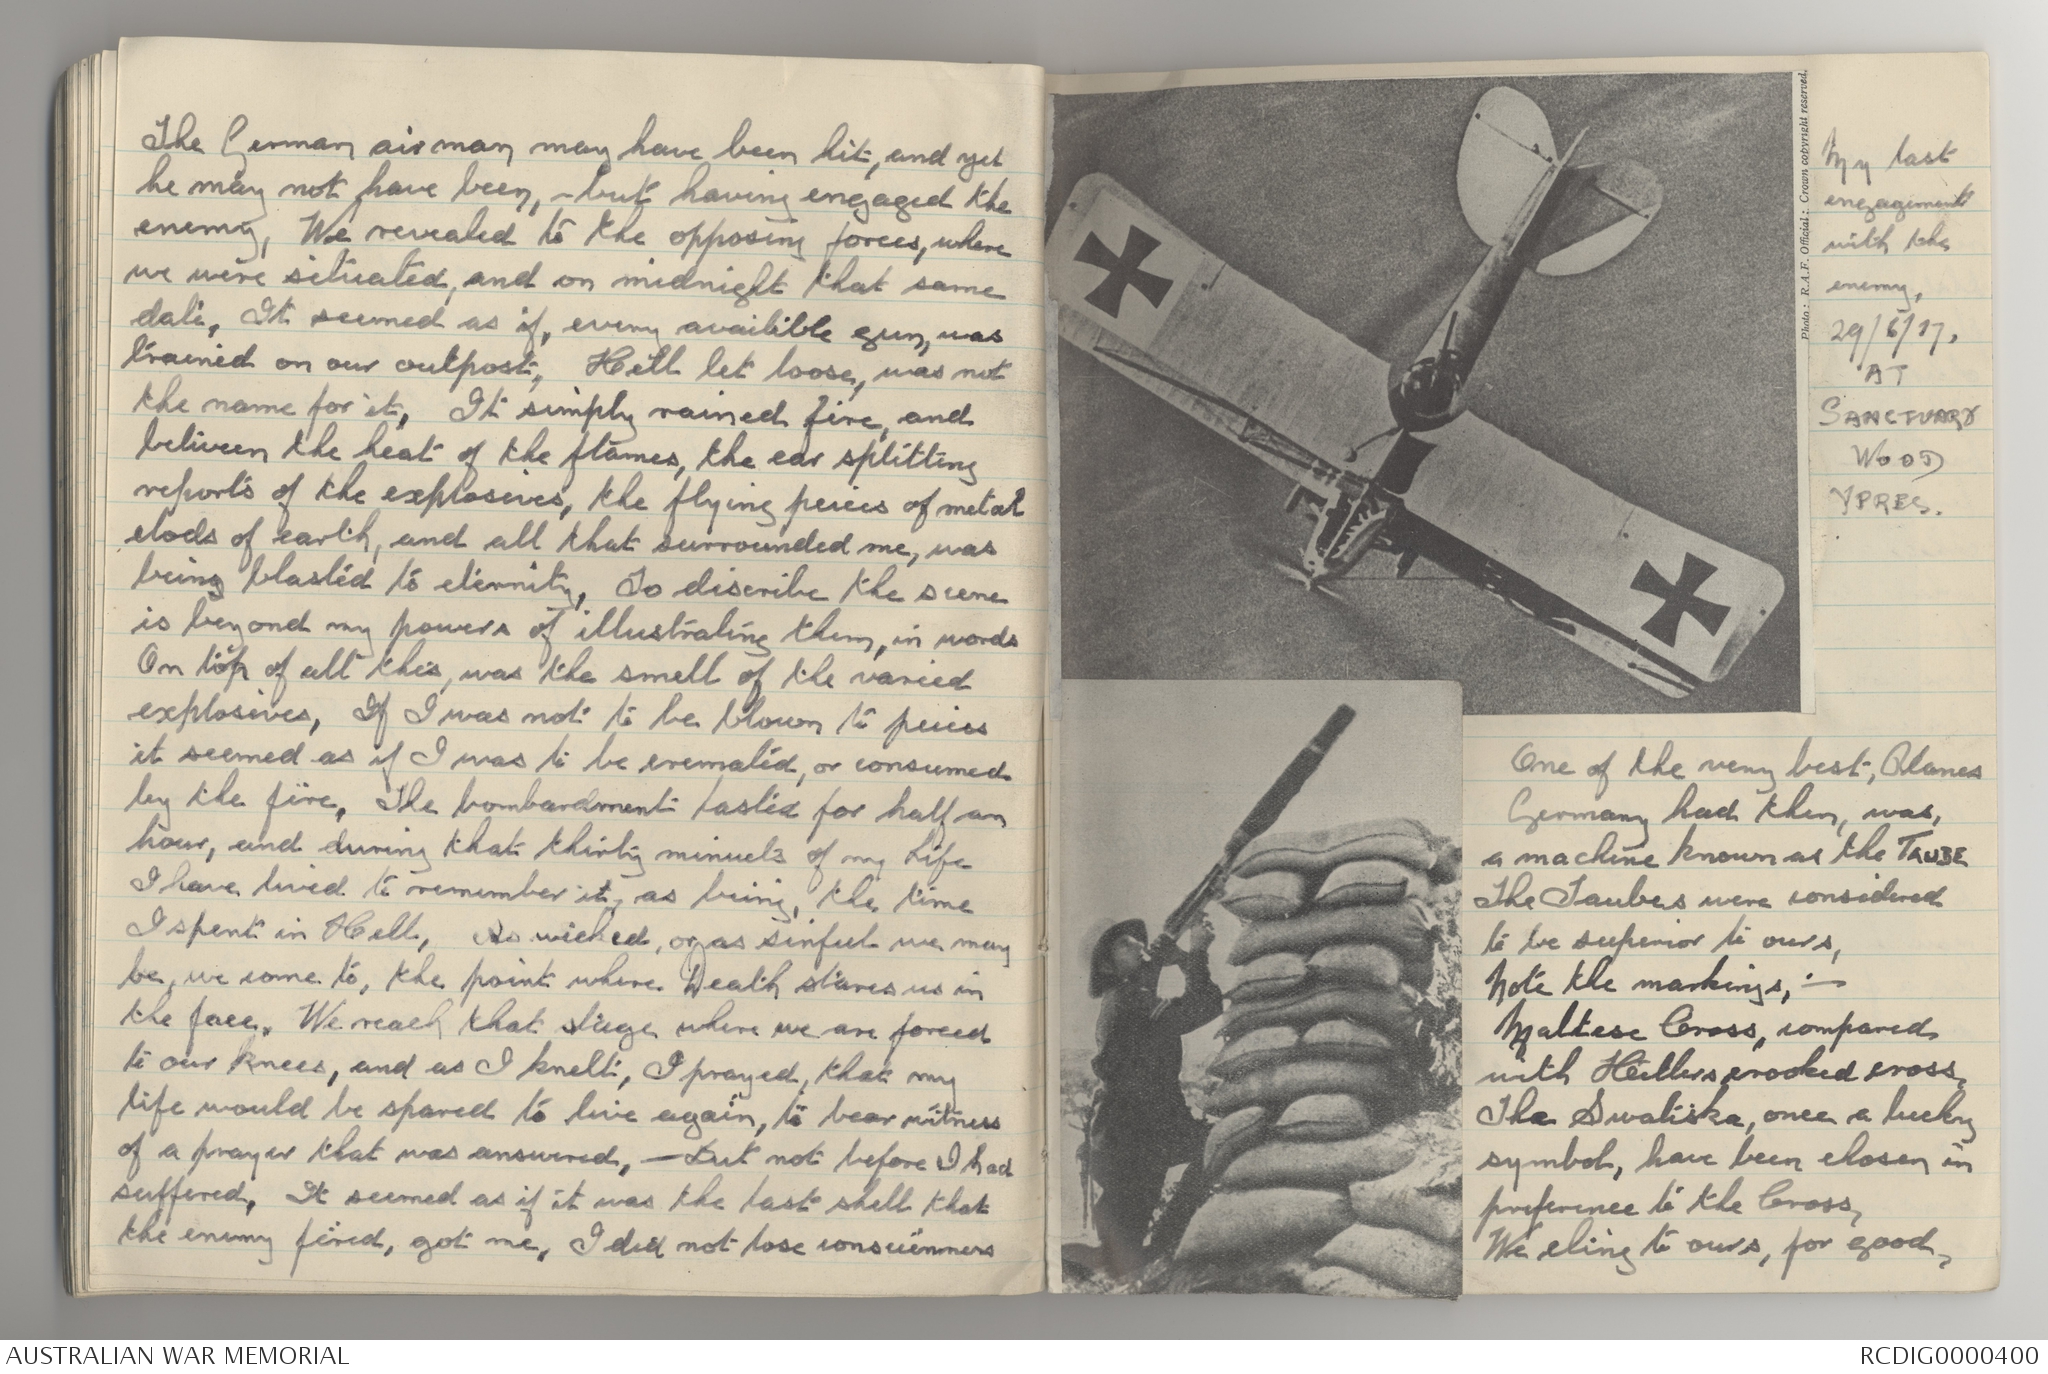 The German airman may have been hit, and yet
he may not have been, - but having engaged the
enemy, We revealed to the opposing forces, where
we were situated, and on midnight that same
date, It seemed as if, every availible gun, was
trained on our outpost, Hell let loose, was not
the name for it, It simply rained fire, and
between the heat of the flames, the ear splitting
reports of the explosives, the flying peices of metal
clods of earth, and all that surrounded me, was
being blasted to eternity, To discribe the scene
is beyond my powers of illustrating them, in words
On top of all this, was the smell of the varied
explosives, If I was not to be blown to peices
it seemed as if I was to be cremated, or consumed
by the fire, The bombardment lasted for half an
hour, and during that thirty minuets of my life
I have lived to remember it, as being, the time
I spent in Hell, As wicked, or as sinful we may
be, we come to, the point where Death stares us in
the face. We reach that stage where we are forced
to our knees, and as I knelt, I prayed, that my
life would be spared to live again, to bear witness
of a prayer that was answered, - But not before I had
suffered, It seemed as if it was the last shell that
the enemy fired, got me, I did not lose conscienness
Photo: R.A.F. Official: Crown copyright reserved.
My last
engagement
with the
enemy,
29/6/17,
AT
SANCTUARY
WOOD
YPRES.
One of the very best, Planes
Germany had then, was,
a machine known as the TAUBE
The Taubes were considered
to be superior to ours,
Note the markings, :-
Maltese Cross, compared
with Hitlers crooked cross,
The Swatiska, once a lucky
symbol, have been chosen in
preference to the Cross,
We cling to ours, for good,
AUSTRALIAN WAR MEMORIAL
RCDIG0000400